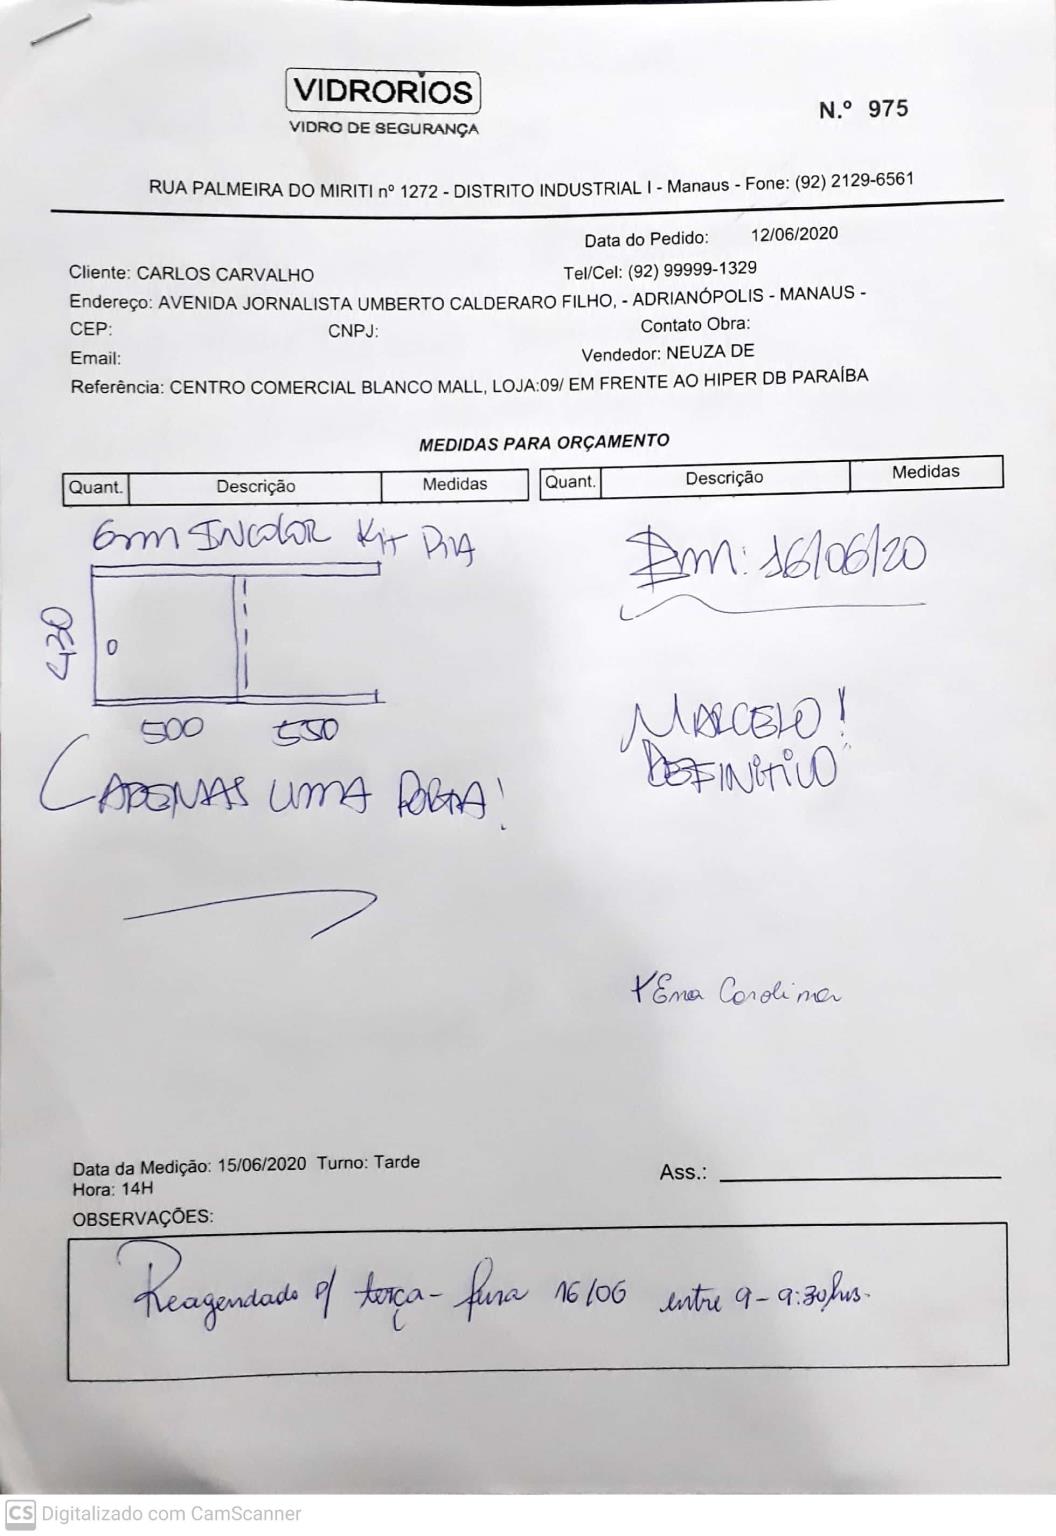 VIDRORIOS
VIDRO DE SEGURANÇA
N.º 975
RUA PALMEIRA DO MIRITI nº 1272 - DISTRITO INDUSTRIAL I - Manaus - Fone: (92) 2129-6561
Data do Pedido: 12/06/2020
Cliente: CARLOS CARVALHO Tel/Cel: (92) 99999-1329
Endereço: AVENIDA JORNALISTA UMBERTO CALDERARO FILHO, - ADRIANÓPOLIS - MANAUS -
CEP: CNPJ: Contato Obra:
Email: Vendedor: NEUZA DE
Referência: CENTRO COMERCIAL BLANCO MALL, LOJA:09/ EM FRENTE AO HIPER DB PARAÍBA
MEDIDAS PARA ORÇAMENTO
Quant. Descrição Medidas Quant. Descrição Medidas
6mm INCOLOR KIT PIA
430
500 550
APENAS UMA PORTA!
Em: 16/06/20
MARCELO!
DEFINITIVO"
Carolina
Data da Medição: 15/06/2020 Turno: Tarde
Hora: 14H
Ass.:
OBSERVAÇÕES:
Reagendado p/ terça-feira 16/06 entre 9-9:30hrs.
CS Digitalizado com CamScanner